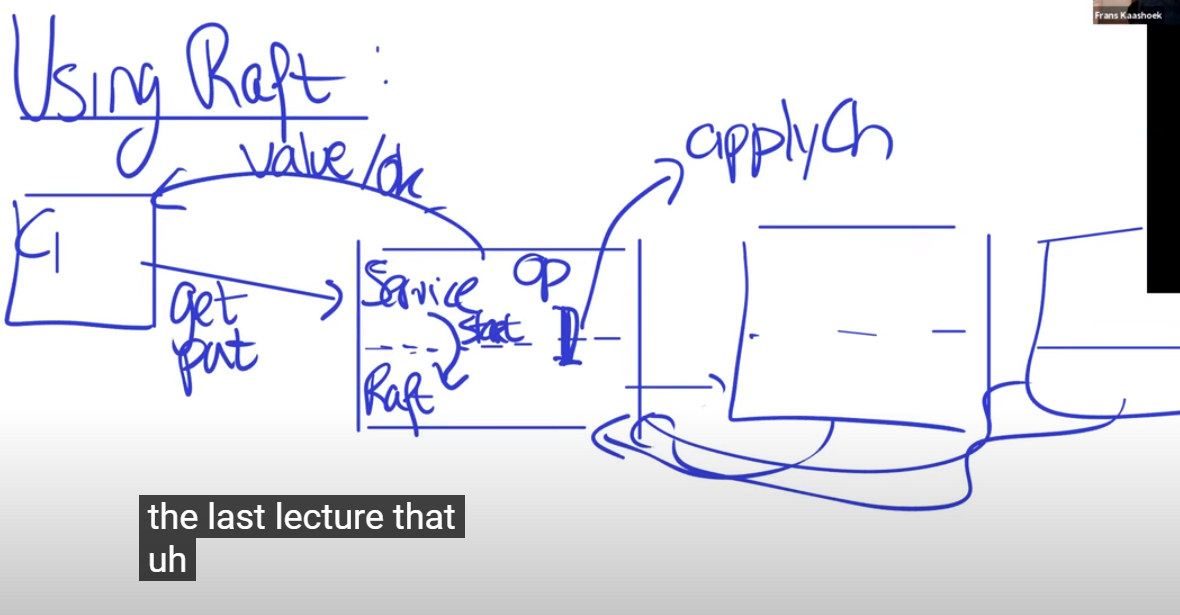 Frans Kaashoek
Using Raft :
applyCh
value/ok
C1
get
put
Service
Op
Start
Raft
the last lecture that
uh